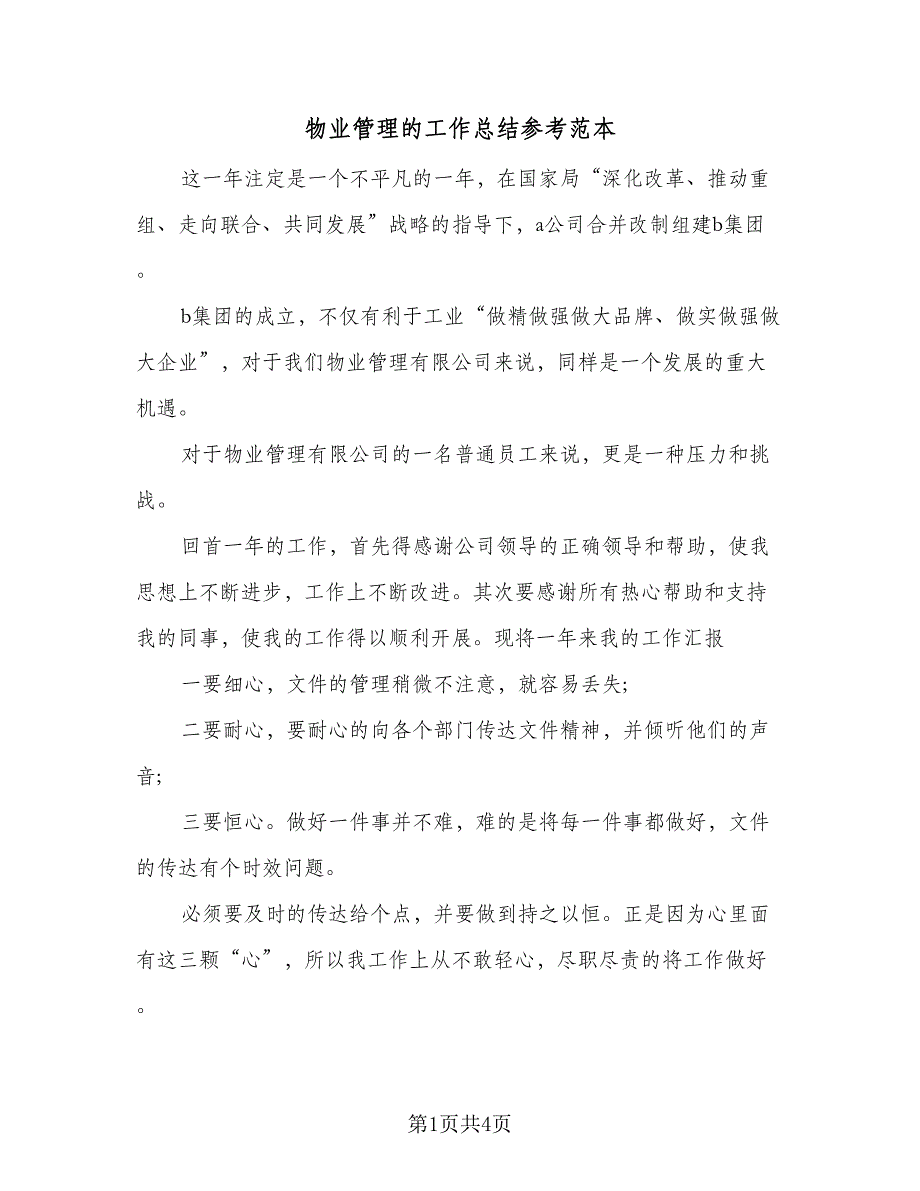 物业管理的工作总结参考范本
这一年注定是一个不平凡的一年，在国家局“深化改革、推动重
组、走向联合、共同发展”战略的指导下，a公司合并改制组建b集团
。
b集团的成立，不仅有利于工业“做精做强做大品牌、做实做强做
大企业”，对于我们物业管理有限公司来说，同样是一个发展的重大
机遇。
对于物业管理有限公司的一名普通员工来说，更是一种压力和挑
战。
回首一年的工作，首先得感谢公司领导的正确领导和帮助，使我
思想上不断进步，工作上不断改进。其次要感谢所有热心帮助和支持
我的同事，使我的工作得以顺利开展。现将一年来我的工作汇报
一要细心，文件的管理稍微不注意，就容易丢失;
二要耐心，要耐心的向各个部门传达文件精神，并倾听他们的声
音;
三要恒心。做好一件事并不难，难的是将每一件事都做好，文件
的传达有个时效问题。
必须要及时的传达给个点，并要做到持之以恒。正是因为心里面
有这三颗“心”，所以我工作上从不敢轻心，尽职尽责的将工作做好
。
第1页共4页